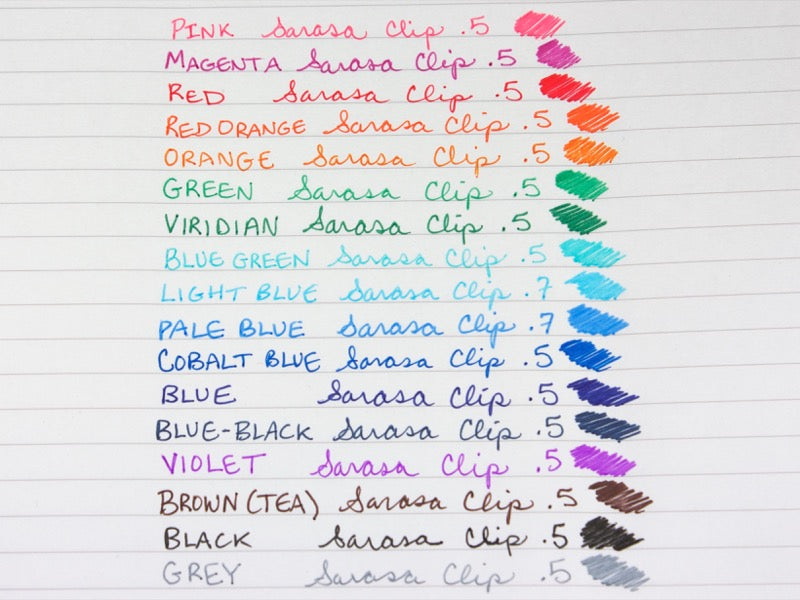 PINK Sarasa Clip .5
MAGENTA Sarasa Clip .5
RED Sarasa Clip .5
RED ORANGE Sarasa Clip .5
ORANGE Sarasa Clip .5
GREEN Sarasa Clip .5
VIRIDIAN Sarasa Clip .5
BLUE GREEN Sarasa Clip .5
LIGHT BLUE Sarasa Clip .7
PALE BLUE Sarasa Clip .7
COBALT BLUE Sarasa Clip .5
BLUE Sarasa Clip .5
BLUE-BLACK Sarasa Clip .5
VIOLET Sarasa Clip .5
BROWN (TEA) Sarasa Clip .5
BLACK Sarasa Clip .5
GREY Sarasa Clip .5